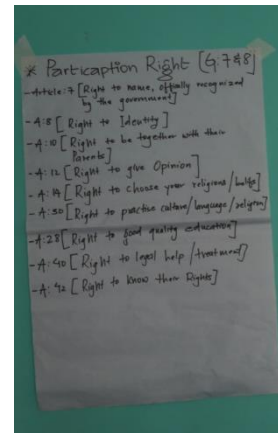 * Particaption Right [G.7&8]
- Article:7 [Right to name, offically recognized
by the government]
- A:8 [Right to Identity]
- A:10 [Right to be together with their
Parents]
- A:12 [Right to give Opinion]
- A:14 [Right to choose your religions/belife]
- A:30 [Right to practice culture/language/religion]
- A:28 [Right to good quality education]
- A:40 [Right to legal help/treatment]
- A:42 [Right to know their Rights]